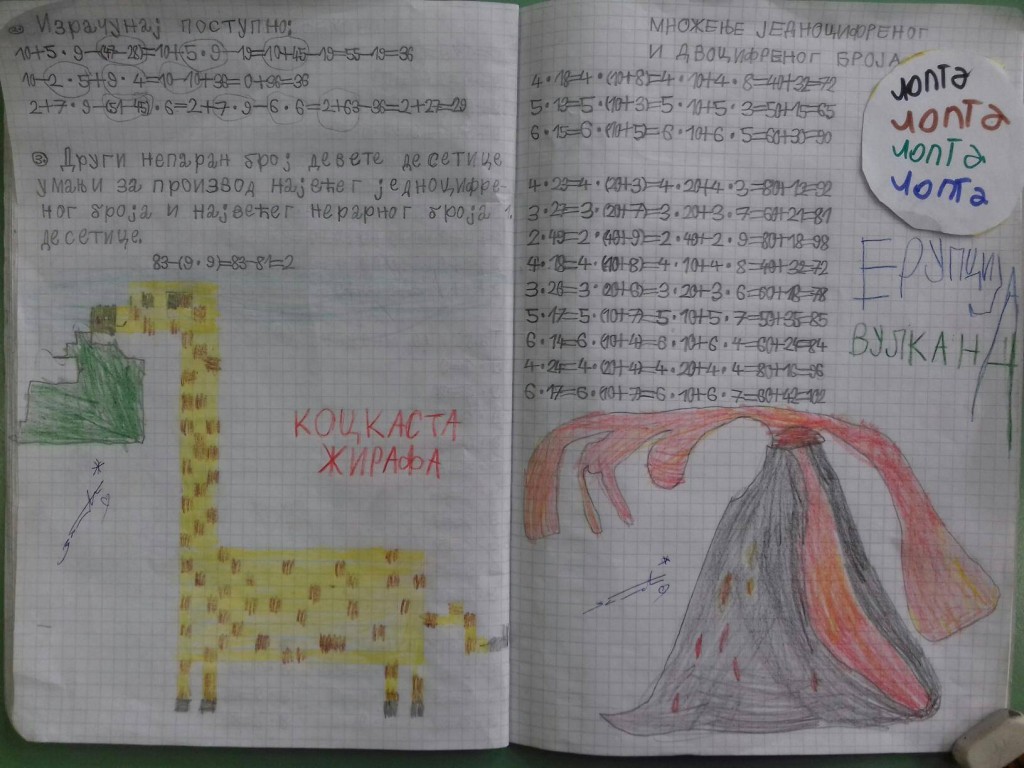 Израчунај поступно:
10+5·9-(47-28)=10+(5·9)-19=10+45-19=55-19=36
10-2·5+9·4=10-10+36=0+36=36
2+7·9-(51-45)·6=2+7·9-6·6=2+63-36=2+27=29
③ Други непаран број девете десетице
умањи за производ највећег једноцифре-
ног броја и највећег непарног броја 1.
десетице.
83-(9·9)=83-81=2
КОЦКАСТА
ЖИРАФА
МНОЖЕЊЕ ЈЕДНОЦИФРЕНОГ
И ДВОЦИФРЕНОГ БРОЈА
4·18=4·(10+8)=4·10+4·8=40+32=72
5·13=5·(10+3)=5·10+5·3=50+15=65
6·15=6·(10+5)=6·10+6·5=60+30=90
4·23=4·(20+3)=4·20+4·3=80+12=92
3·27=3·(20+7)=3·20+3·7=60+21=81
2·49=2·(40+9)=2·40+2·9=80+18=98
4·18=4·(10+8)=4·10+4·8=40+32=72
3·26=3·(20+6)=3·20+3·6=60+18=78
5·17=5·(10+7)=5·10+5·7=50+35=85
6·14=6·(10+4)=6·10+6·4=60+24=84
4·24=4·(20+4)=4·20+4·4=80+16=96
6·17=6·(10+7)=6·10+6·7=60+42=102
лопта
лопта
лопта
лопта
ЕРУПЦИЈА
ВУЛКАНА